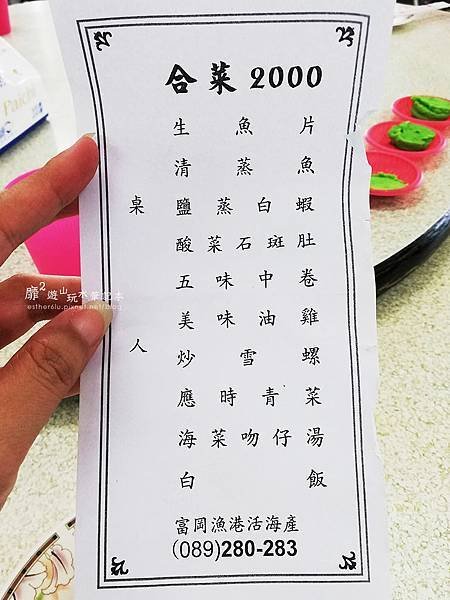 合菜2000
生魚片
清蒸魚
鹽蒸白蝦
酸菜石斑肚
五味中卷
美味油雞
炒雪螺
應時青菜
海菜吻仔湯
白飯
桌
人
富岡漁港活海產
(089)280-283
靡²遊山玩水筆記本
esther6lu.pixnet.net/blog